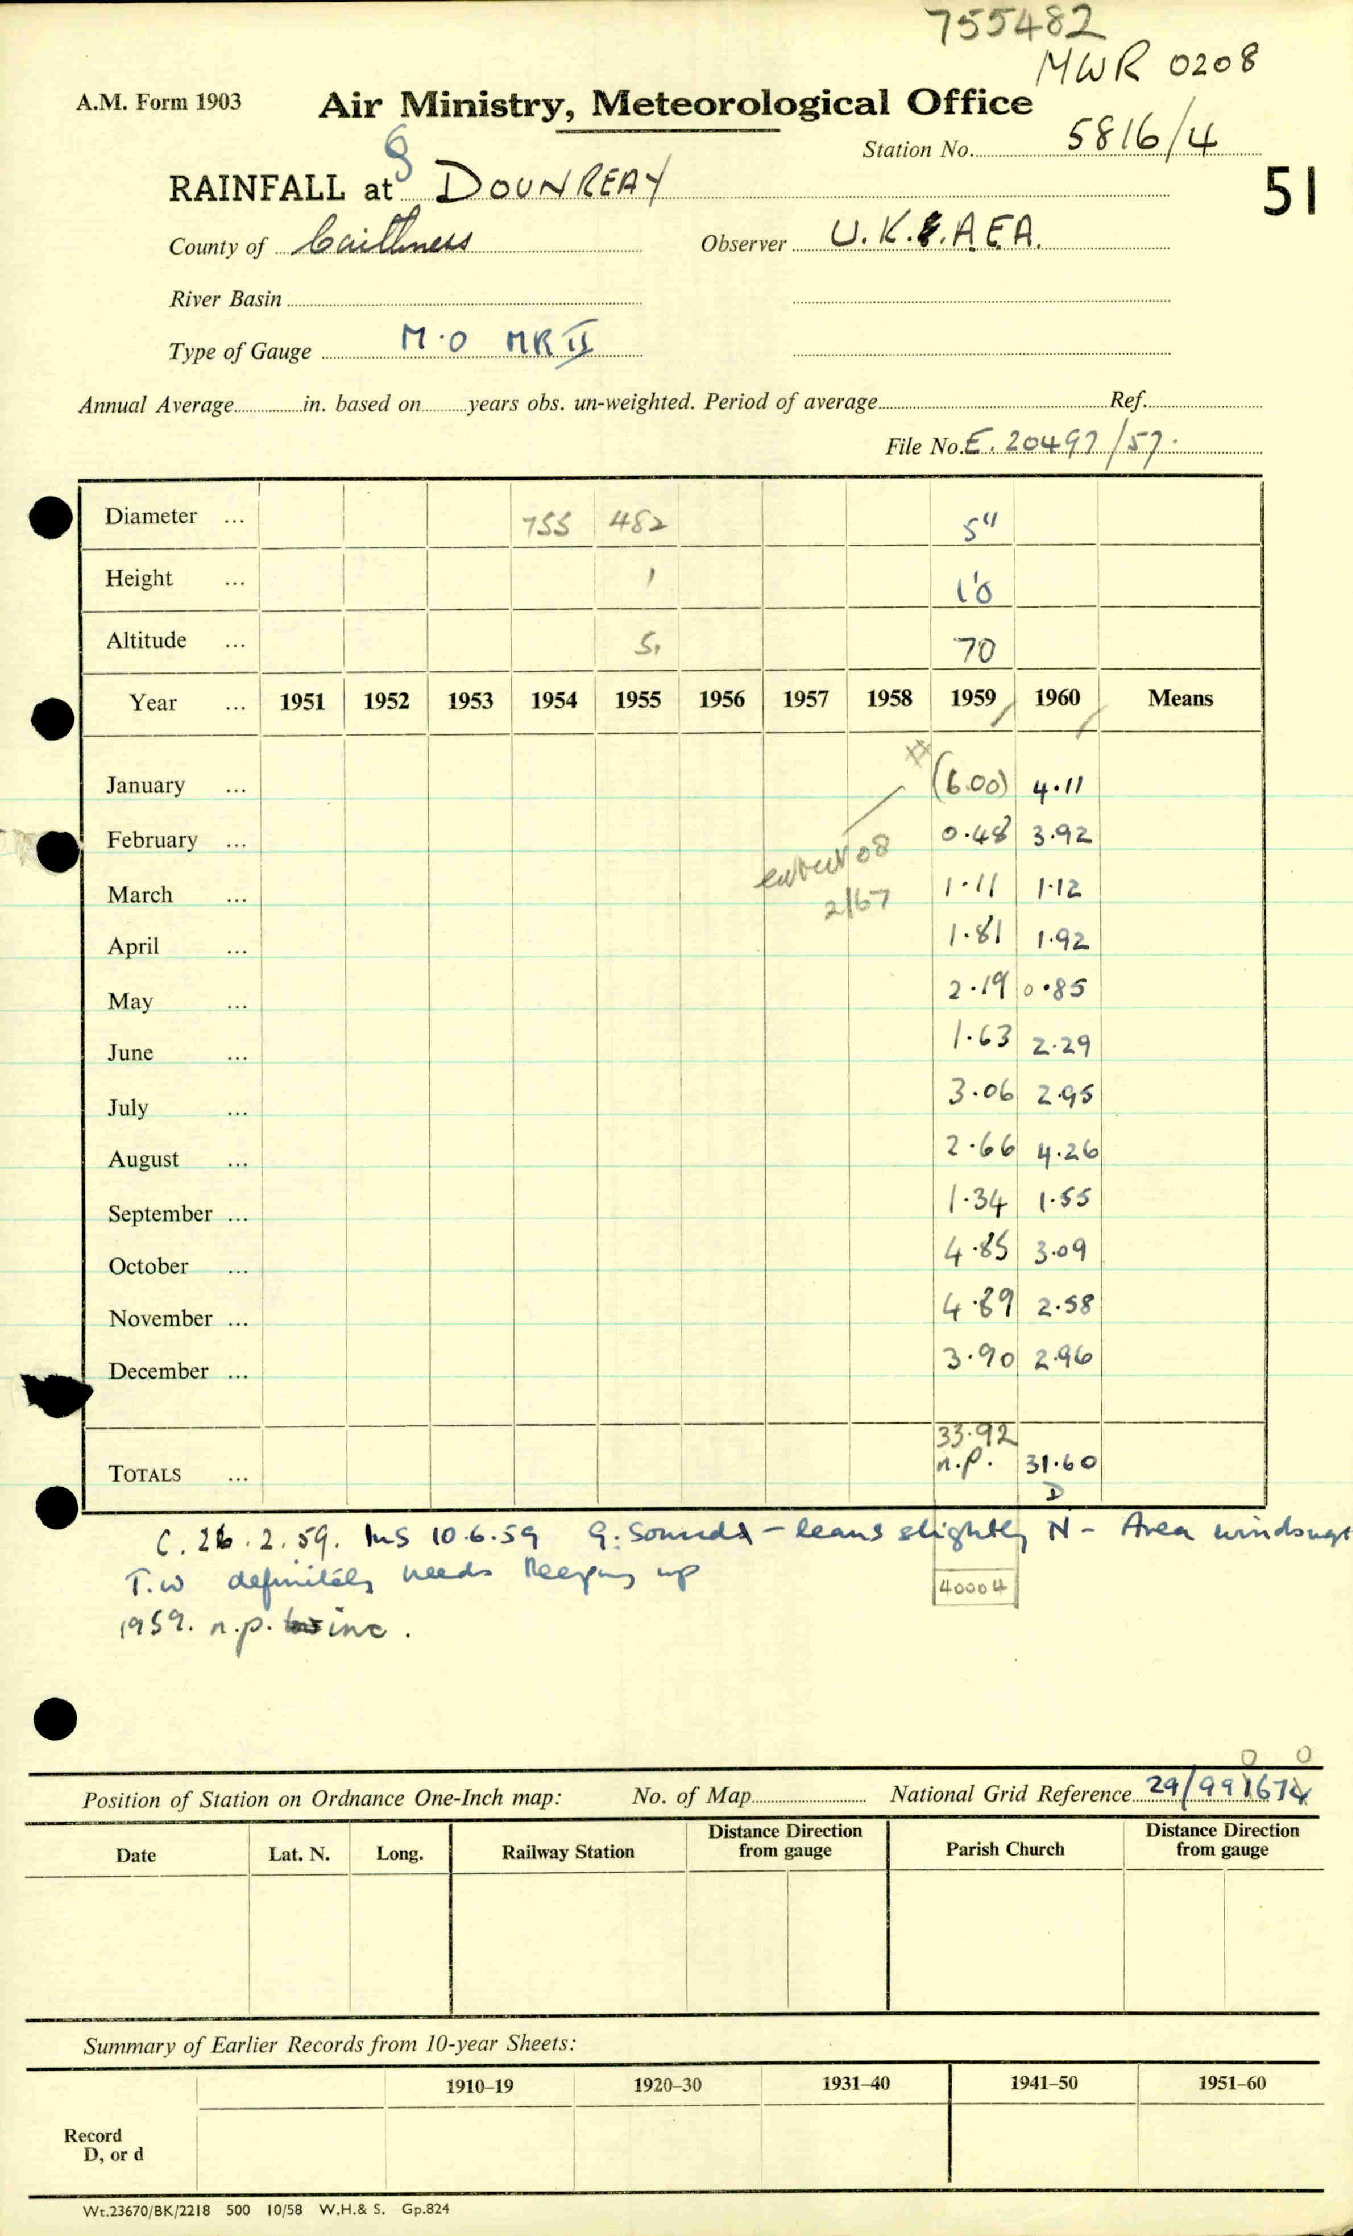 755482
MWR 0208
A.M. Form 1903 Air Ministry, Meteorological Office
Station No. 5816/4
RAINFALL at DOUNREAY
51
County of Caithness Observer U.K.A.E.A.
River Basin
Type of Gauge M.O MK II
Annual Average in. based on years obs. un-weighted. Period of average Ref.
File No. E. 20497/57.
Diameter ... 755 482 5"
Height ... 1 1'0
Altitude ... 70
Year ... 1951 1952 1953 1954 1955 1956 1957 1958 1959 1960 Means
January ... (6.00) 4.11
February ... 0.48 3.92
08
March ... 1.11 1.12
2/67
April ... 1.81 1.92
May ... 2.19 0.85
June ... 1.63 2.29
July ... 3.06 2.95
August ... 2.66 4.26
September ... 1.34 1.55
October ... 4.85 3.09
November ... 4.89 2.58
December ... 3.90 2.96
33.92
TOTALS ... n.p. 31.60
D
C. 26.2.59. Ins 10.6.59 G: Sounds - leans slightly N - Area windswept
T.W definitely needs keeping up
40004
1959. n.p. inc.
0 0
Position of Station on Ordnance One-Inch map: No. of Map National Grid Reference 29/991674
Date Lat. N. Long. Railway Station Distance Direction from gauge Parish Church Distance Direction from gauge
Summary of Earlier Records from 10-year Sheets:
1910–19 1920–30 1931–40 1941–50 1951–60
Record
D, or d
Wt.23670/BK/2218 500 10/58 W.H.& S. Gp.824